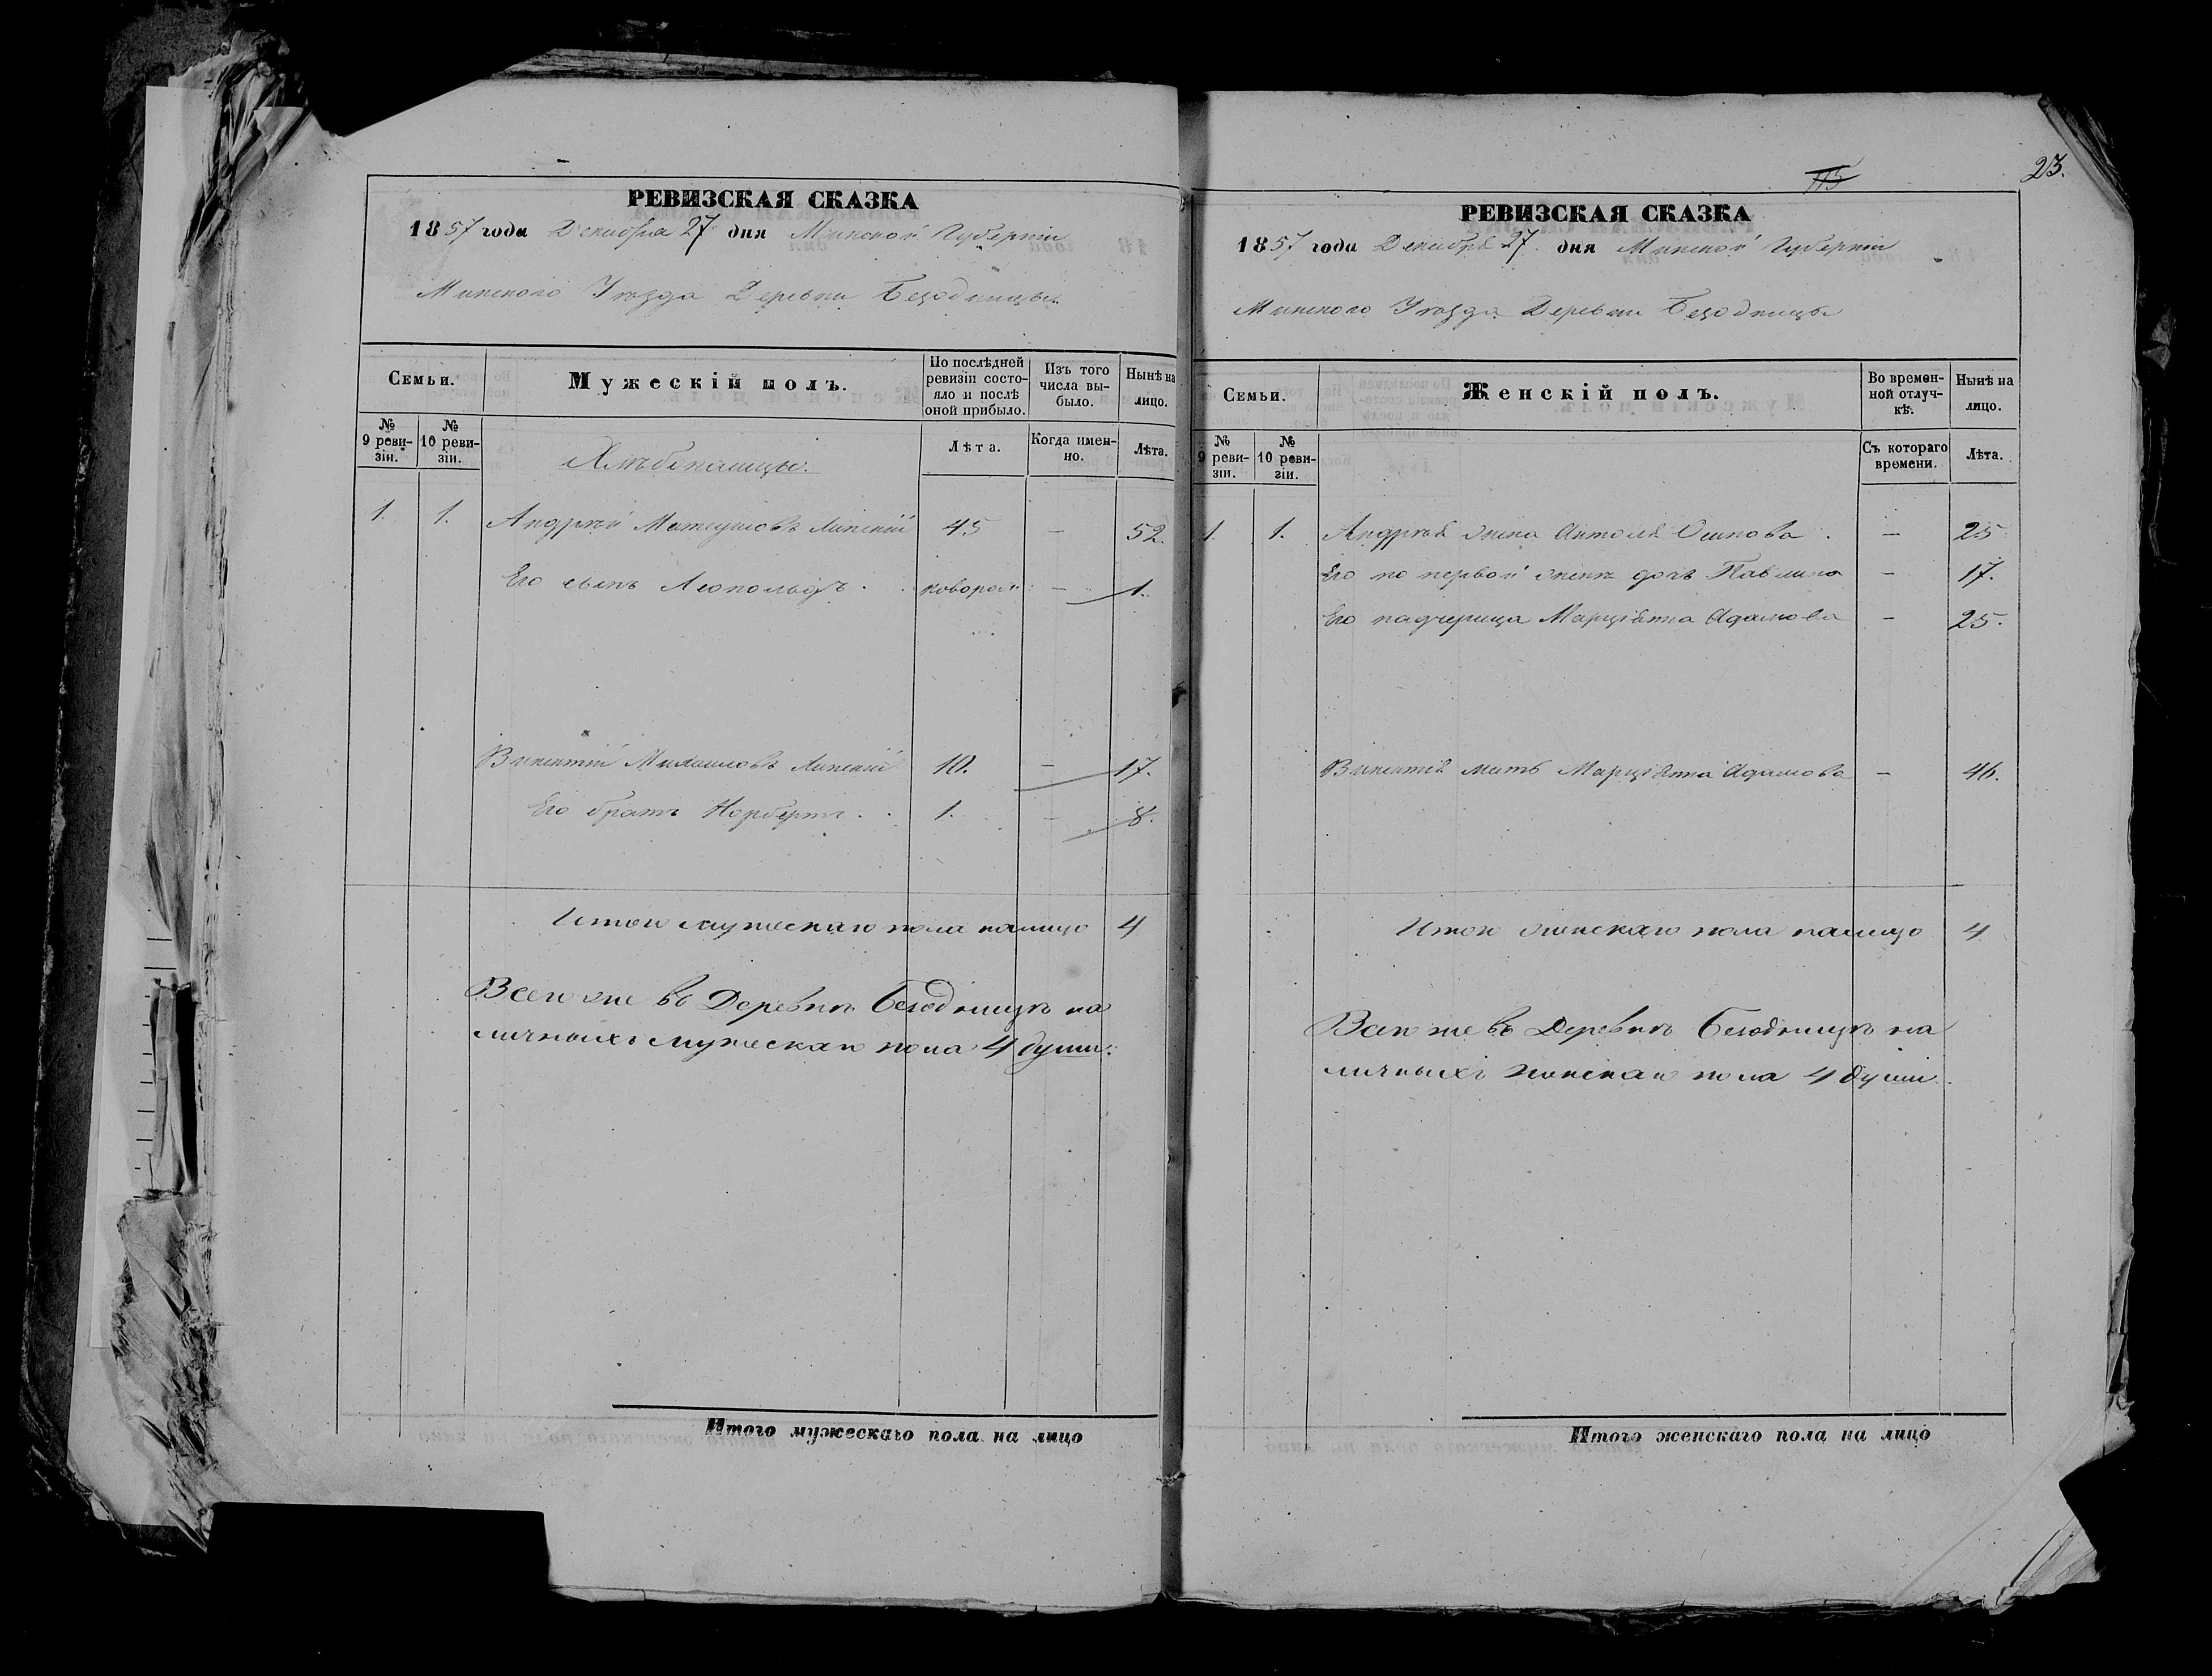 РЕВИЗСКАЯ СКАЗКА
1857 года Декабря 27 дня Минской Губерніи
Минского Уѣзда Деревни Безодницы
Семьи.
Мужескій полъ.
По послѣдней ревизіи состояло и послѣ оной прибыло.
Изъ того числа выбыло.
Нынѣ на лицо.
№ 9 ревизіи.
№ 10 ревизіи.
Хлѣбопашцы.
Лѣта.
Когда именно.
Лѣта.
1. 1. Андрей Матеушовъ Липскій 45 — 52.
Его сынъ Леопольдъ. новорож. — 1.
Викентій Михаиловъ Липскій 10. — 17.
Его братъ Норбертъ. 1. — 8.
Итого мужескаго пола налицо 4
Всего же въ Деревнѣ Безодницѣ на
личныхъ мужескаго пола 4 души.
Итого мужескаго пола на лицо
115
23.
РЕВИЗСКАЯ СКАЗКА
1857 года Декабря 27 дня Минской Губерніи
Минского Уѣзда Деревни Безодницы
Семьи.
Женскій полъ.
Во временной отлучкѣ.
Нынѣ на лицо.
№ 9 ревизіи.
№ 10 ревизіи.
Съ котораго времени.
Лѣта.
1. 1. Андрея жена Антоля Осипова. — 25
Его по первой женѣ дочь Павлина — 17.
Его падчерица Марціянна Адамова — 25.
Викентія мать Марціянна Адамова — 46.
Итого женскаго пола налицо 4
Всего же въ Деревнѣ Безодницѣ на
личныхъ женскаго пола 4 души.
Итого женскаго пола на лицо